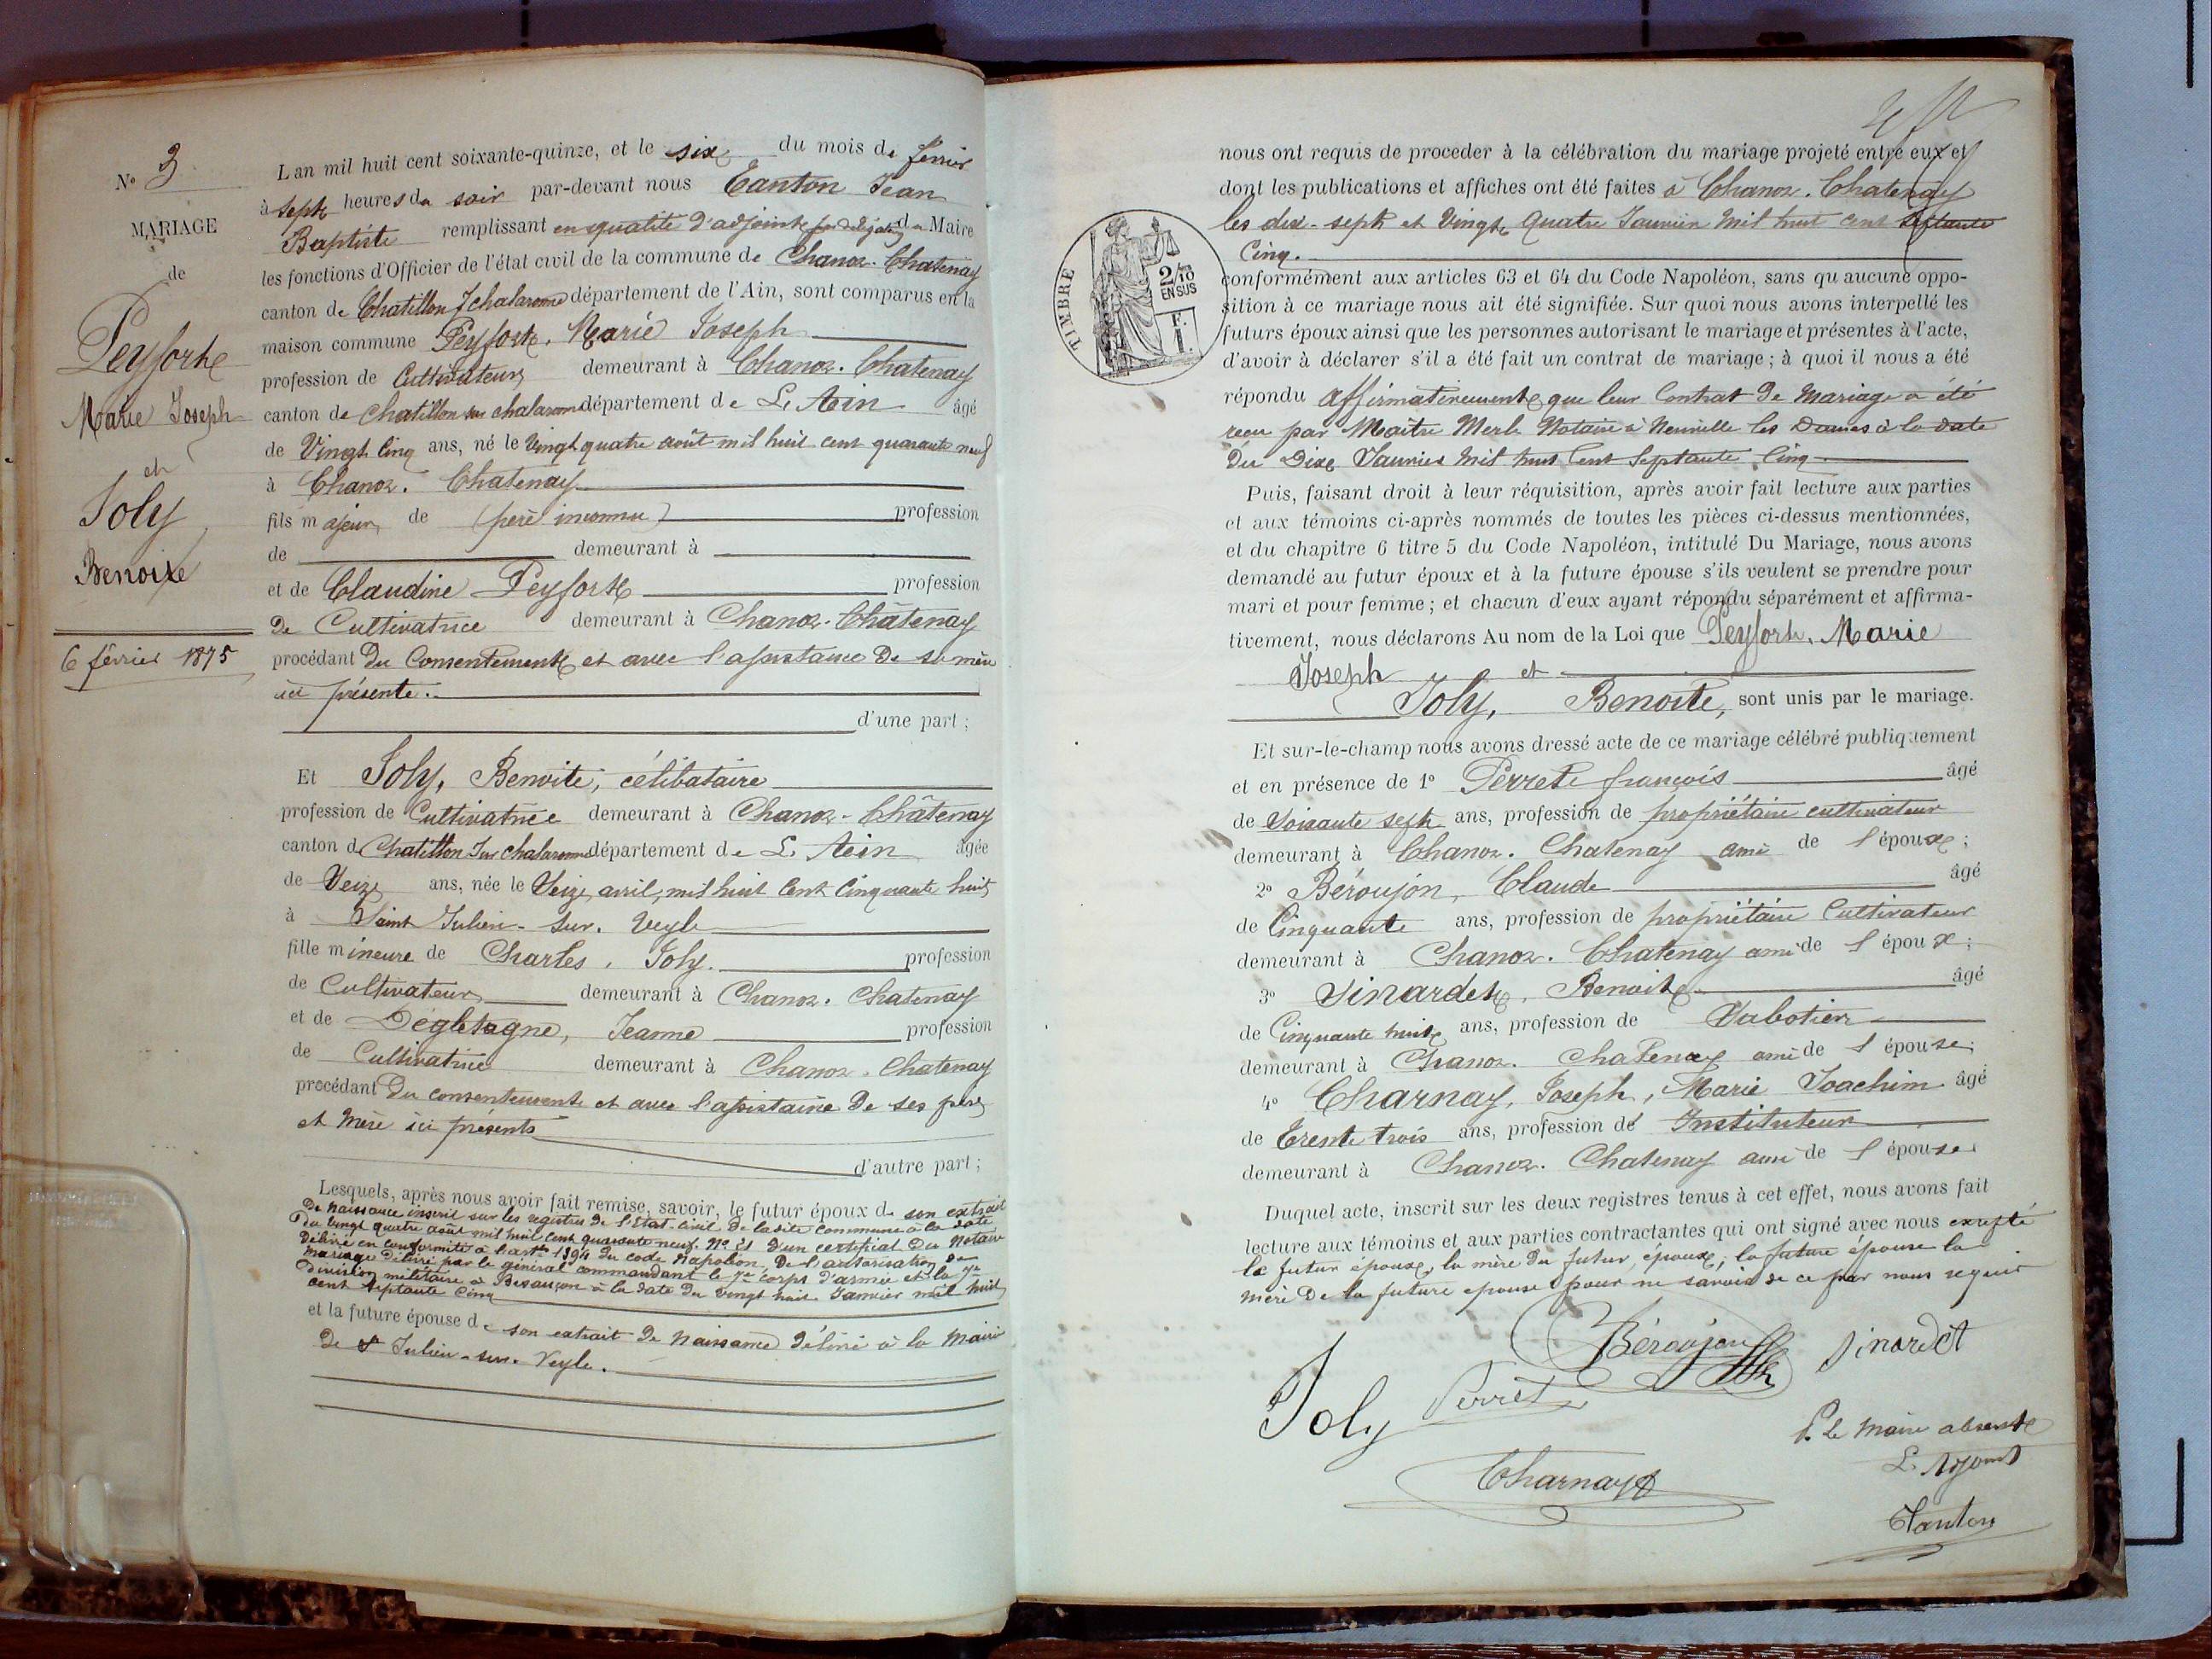 N° 3
MARIAGE
de
Peyfort
Marie Joseph
et
Joly
Benoite
6 février 1875
L an mil huit cent soixante-quinze, et le six du mois de février
à sept heures du soir par-devant nous Tanton Jean
Baptiste remplissant en qualité d'adjoint par délégation du Maire
les fonctions d'Officier de l'état civil de la commune de Chanoz-Chatenay
canton de Chatillon s/chalaronne département de l'Ain, sont comparus en la
maison commune Peyfort, Marie Joseph
profession de Cultivateur demeurant à Chanoz-Chatenay
canton de Chatillon sur chalaronne département de L'Ain âgé
de Vingt Cinq ans, né le Vingt quatre août mil huit cent quarante neuf
à Chanoz-Chatenay
fils majeur de (père inconnu) profession
de demeurant à
et de Claudine Peyfort profession
De Cultivatrice demeurant à Chanoz-Châtenay
procédant Du Consentement et avec l'assistance De sa mère
ici présente.
d'une part ;
Et Joly, Benoite, célibataire
profession de Cultivatrice demeurant à Chanoz-Châtenay
canton de Chatillon Sur Chalaronne département de L'Ain âgée
de Seize ans, née le Seize avril, mil huit Cent Cinquante huit
à Saint Julien-sur-Veyle
fille mineure de Charles, Joly. profession
de Cultivateur demeurant à Chanoz-Chatenay
et de Degletagne, Jeanne profession
de Cultivatrice demeurant à Chanoz-Chatenay
procédant Du consentement et avec l'assistance De ses père
et Mère ici présents
d'autre part ;
Lesquels, après nous avoir fait remise, savoir, le futur époux de son extrait
De Naissance inscrit sur les registres De l'Etat-civil De la dite Commune à la date
Du vingt quatre août mil huit Cent quarante neuf. N° 21 D'un certificat Du Notaire
Délivré en conformité à l'art 1394 du code Napoléon, De l'autorisation de
Mariage délivré par le général commandant le 7e corps d'armée et la 7e
Division militaire à Besançon à la date Du vingt huit Janvier mil huit
cent septante cinq
et la future épouse de son extrait de Naissance délivré à la Mairie
De St Julien-sur-Veyle.
nous ont requis de proceder à la célébration du mariage projeté entre eux et
dont les publications et affiches ont été faites à Chanoz-Chatenay
les dix-sept et Vingt Quatre Janvier Mil huit cent septante
Cinq.
TIMBRE
2/10
EN SUS
F.
1.
conformément aux articles 63 et 64 du Code Napoléon, sans qu aucune oppo-
sition à ce mariage nous ait été signifiée. Sur quoi nous avons interpellé les
futurs époux ainsi que les personnes autorisant le mariage et présentes à l'acte,
d'avoir à déclarer s'il a été fait un contrat de mariage ; à quoi il nous a été
répondu Affirmativement que leur Contrat De Mariage a été
reçu par Maître Merle Notaire à Neuville les Dames à la date
Du Dix Janvier Mil huit Cent Septante Cinq
Puis, faisant droit à leur réquisition, après avoir fait lecture aux parties
et aux témoins ci-après nommés de toutes les pièces ci-dessus mentionnées,
et du chapitre 6 titre 5 du Code Napoléon, intitulé Du Mariage, nous avons
demandé au futur époux et à la future épouse s'ils veulent se prendre pour
mari et pour femme ; et chacun d'eux ayant répondu séparément et affirma-
tivement, nous déclarons Au nom de la Loi que Peyfort, Marie
Joseph et
Joly, Benoite, sont unis par le mariage.
Et sur-le-champ nous avons dressé acte de ce mariage célébré publiquement
et en présence de 1° Perret françois âgé
de Soixante sept ans, profession de propriétaire cultivateur
demeurant à Chanoz-Chatenay ami de l'époux ;
2° Béroujon, Claude âgé
de Cinquante ans, profession de propriétaire Cultivateur
demeurant à Chanoz-Chatenay ami de l'époux ;
3° Sinardet, Benoit âgé
de Cinquante huit ans, profession de Sabotier
demeurant à Chanoz-Chatenay ami de l'épouse ;
4° Charnay, Joseph, Marie Joachim âgé
de Trente trois ans, profession de Instituteur
demeurant à Chanoz-Chatenay ami de l'épouse
Duquel acte, inscrit sur les deux registres tenus à cet effet, nous avons fait
lecture aux témoins et aux parties contractantes qui ont signé avec nous excepté
le futur époux, la mère Du futur époux, la future épouse la
Mère De la future épouse pour ne savoir de ce par nous requis
Béroujon Sinardet
Joly Perret
P. Le Maire absent
L'Adjoint
Charnay
Tanton